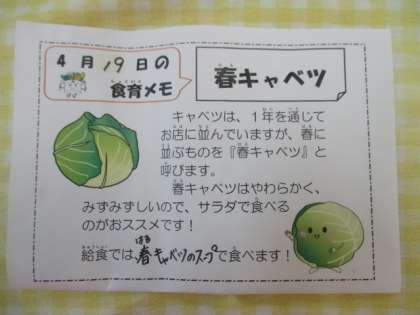 4月19日の
食育メモ
春キャベツ
キャベツは、1年を通じて
お店に並んでいますが、春に
並ぶものを『春キャベツ』と
呼びます。
春キャベツはやわらかく、
みずみずしいので、サラダで食べる
のがおススメです！
給食では、春キャベツのスープで食べます！